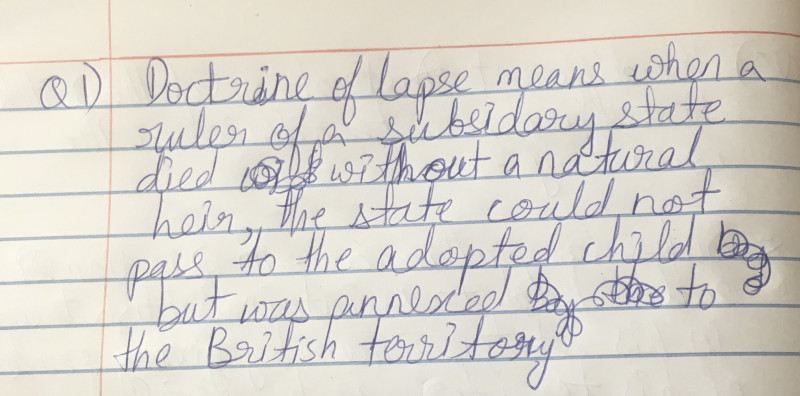 Q1) Doctrine of lapse means when a
ruler of a subsidary state
died without a natural
heir, the state could not
pass to the adopted child
but was annexed to
the British territory